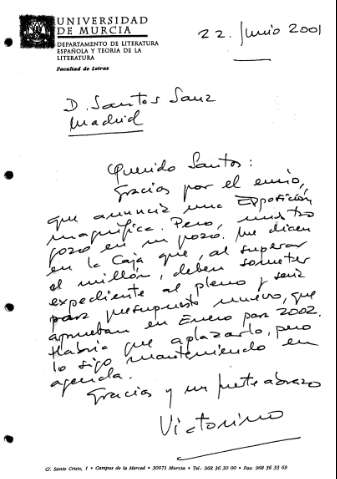 UNIVERSIDAD
DE MURCIA
DEPARTAMENTO DE LITERATURA
ESPAÑOLA Y TEORIA DE LA
LITERATURA
Facultad de Letras
22. Junio 2001
D. Santos Sanz
Madrid
Querido Santos:
Gracias por el envío,
que anuncia una exposición
magnífica. Pero, nuestro
gozo en un pozo. Me dicen
en la Caja que, al superar
el millón, deben someter
expediente al pleno y sería
para presupuesto nuevo, que
aprueban en Enero para 2002.
Habría que aplazarlo, pero
lo sigo manteniendo en
agenda.
Gracias y un fuerte abrazo
Victorino
C/. Santo Cristo, 1 • Campus de la Merced • 30071 Murcia • Tel. 968 36 30 00 • Fax: 968 36 33 63